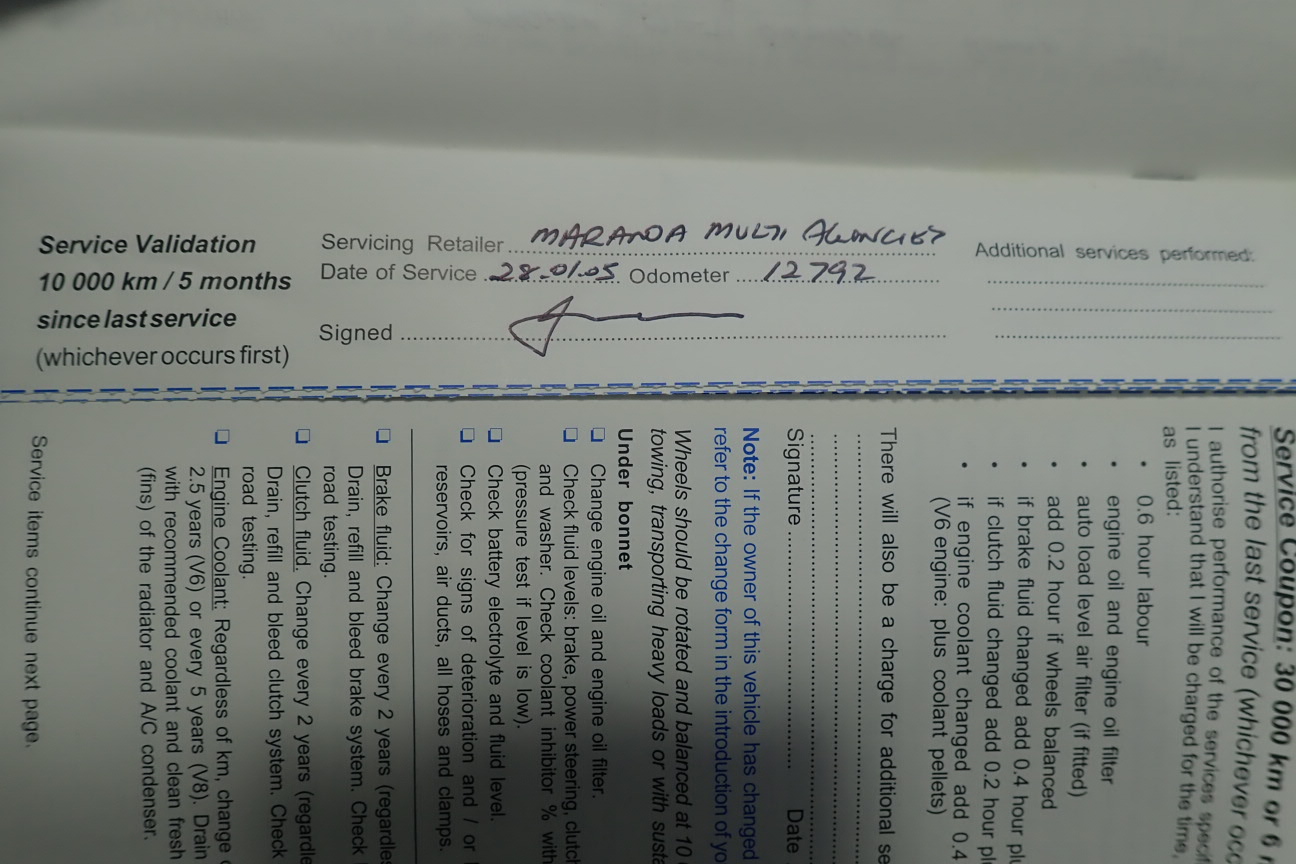 Service Validation
10 000 km / 5 months
since last service
(whichever occurs first)
Servicing Retailer MARANDA MULTI AGENCIES
Date of Service 28.01.05 Odometer 12792
Signed
Additional services performed:
Service Coupon: 30 000 km or 6
from the last service (whichever occ
I authorise performance of the services specif
I understand that I will be charged for the time,
as listed:
• 0.6 hour labour
• engine oil and engine oil filter
• auto load level air filter (if fitted)
• add 0.2 hour if wheels balanced
• if brake fluid changed add 0.4 hour plu
• if clutch fluid changed add 0.2 hour pl
• if engine coolant changed add 0.4
(V6 engine: plus coolant pellets)
There will also be a charge for additional se
Signature Date
Note: If the owner of this vehicle has changed
refer to the change form in the introduction of yo
Wheels should be rotated and balanced at 10
towing, transporting heavy loads or with susta
Under bonnet
❏ Change engine oil and engine oil filter.
❏ Check fluid levels: brake, power steering, clutch
and washer. Check coolant inhibitor % with
(pressure test if level is low).
❏ Check battery electrolyte and fluid level.
❏ Check for signs of deterioration and / or
reservoirs, air ducts, all hoses and clamps.
❏ Brake fluid: Change every 2 years (regardles
Drain, refill and bleed brake system. Check
road testing.
❏ Clutch fluid. Change every 2 years (regardle
Drain, refill and bleed clutch system. Check
road testing.
❏ Engine Coolant: Regardless of km, change
2.5 years (V6) or every 5 years (V8). Drain
with recommended coolant and clean fresh
(fins) of the radiator and A/C condenser.
Service items continue next page.